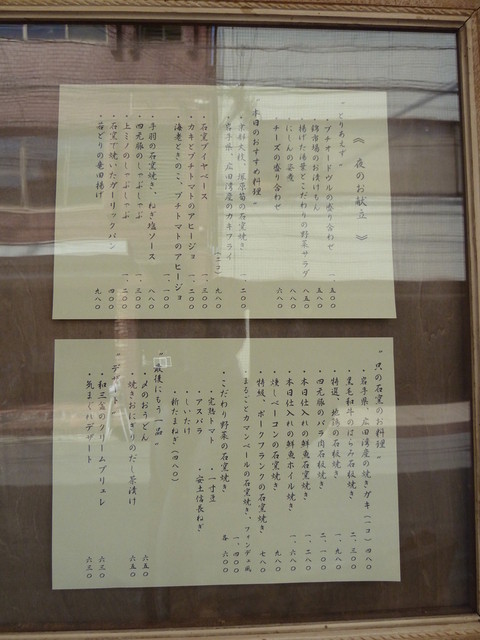 《 夜のお献立 》
"とりあえず"
・プチオードヴルの盛り合わせ 一、五〇〇
・錦市場のお漬けもん 八五〇
・揚げた湯葉とこだわりの野菜サラダ 八五〇
・にしんの旨煮 八〇〇
・チーズの盛り合わせ 六八〇
"本日のおすすめ料理"
・京都大枝、塚原筍の石窯焼き 一、二〇〇
・岩手県、広田湾産のカキフライ (二コ) 九八〇
・石窯ブイヤベース 一、三〇〇
・カキとプチトマトのアヒージョ 一、二〇〇
・海老ときのこ、プチトマトのアヒージョ 一、一〇〇
・手羽の石窯焼き、ねぎ塩ソース 八八〇
・四元豚のしゃぶしゃぶ 一、三〇〇
・上ミノのしゃぶしゃぶ 一、二〇〇
・石窯で焼いたガーリックパン 四〇〇
・若どりの竜田揚げ 九八〇
"炎の石窯のお料理"
・岩手県、広田湾産の焼きガキ(一コ) 四八〇
・黒毛和牛のはらみ石板焼き 二、三〇〇
・特選、地鶏の石板焼き 一、九八〇
・四元豚のバラ肉石板焼き 二、一〇〇
・本日仕入れの鮮魚石窯焼き 一、二八〇
・本日仕入れの鮮魚ホイル焼き 一、六八〇
・燻しベーコンの石窯焼き 九八〇
・特級、ポークフランクの石窯焼き 七八〇
・まるごとカマンベールの石窯焼き、フォンデュ風 一、四〇〇
・こだわり野菜の石窯焼き 各 六〇〇
・完熟トマト ・一寸豆
・アスパラ ・安土信長ねぎ
・しいたけ
・新たまねぎ (四八〇)
"最後にもう一品"
・〆のおうどん 六五〇
・焼きおにぎりのだし茶漬け 六五〇
"デザート"
・和三盆のクリームブリュレ 六三〇
・気まぐれデザート 六三〇